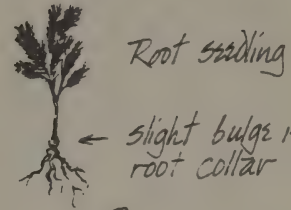 Root seedling
← slight bulge
root collar